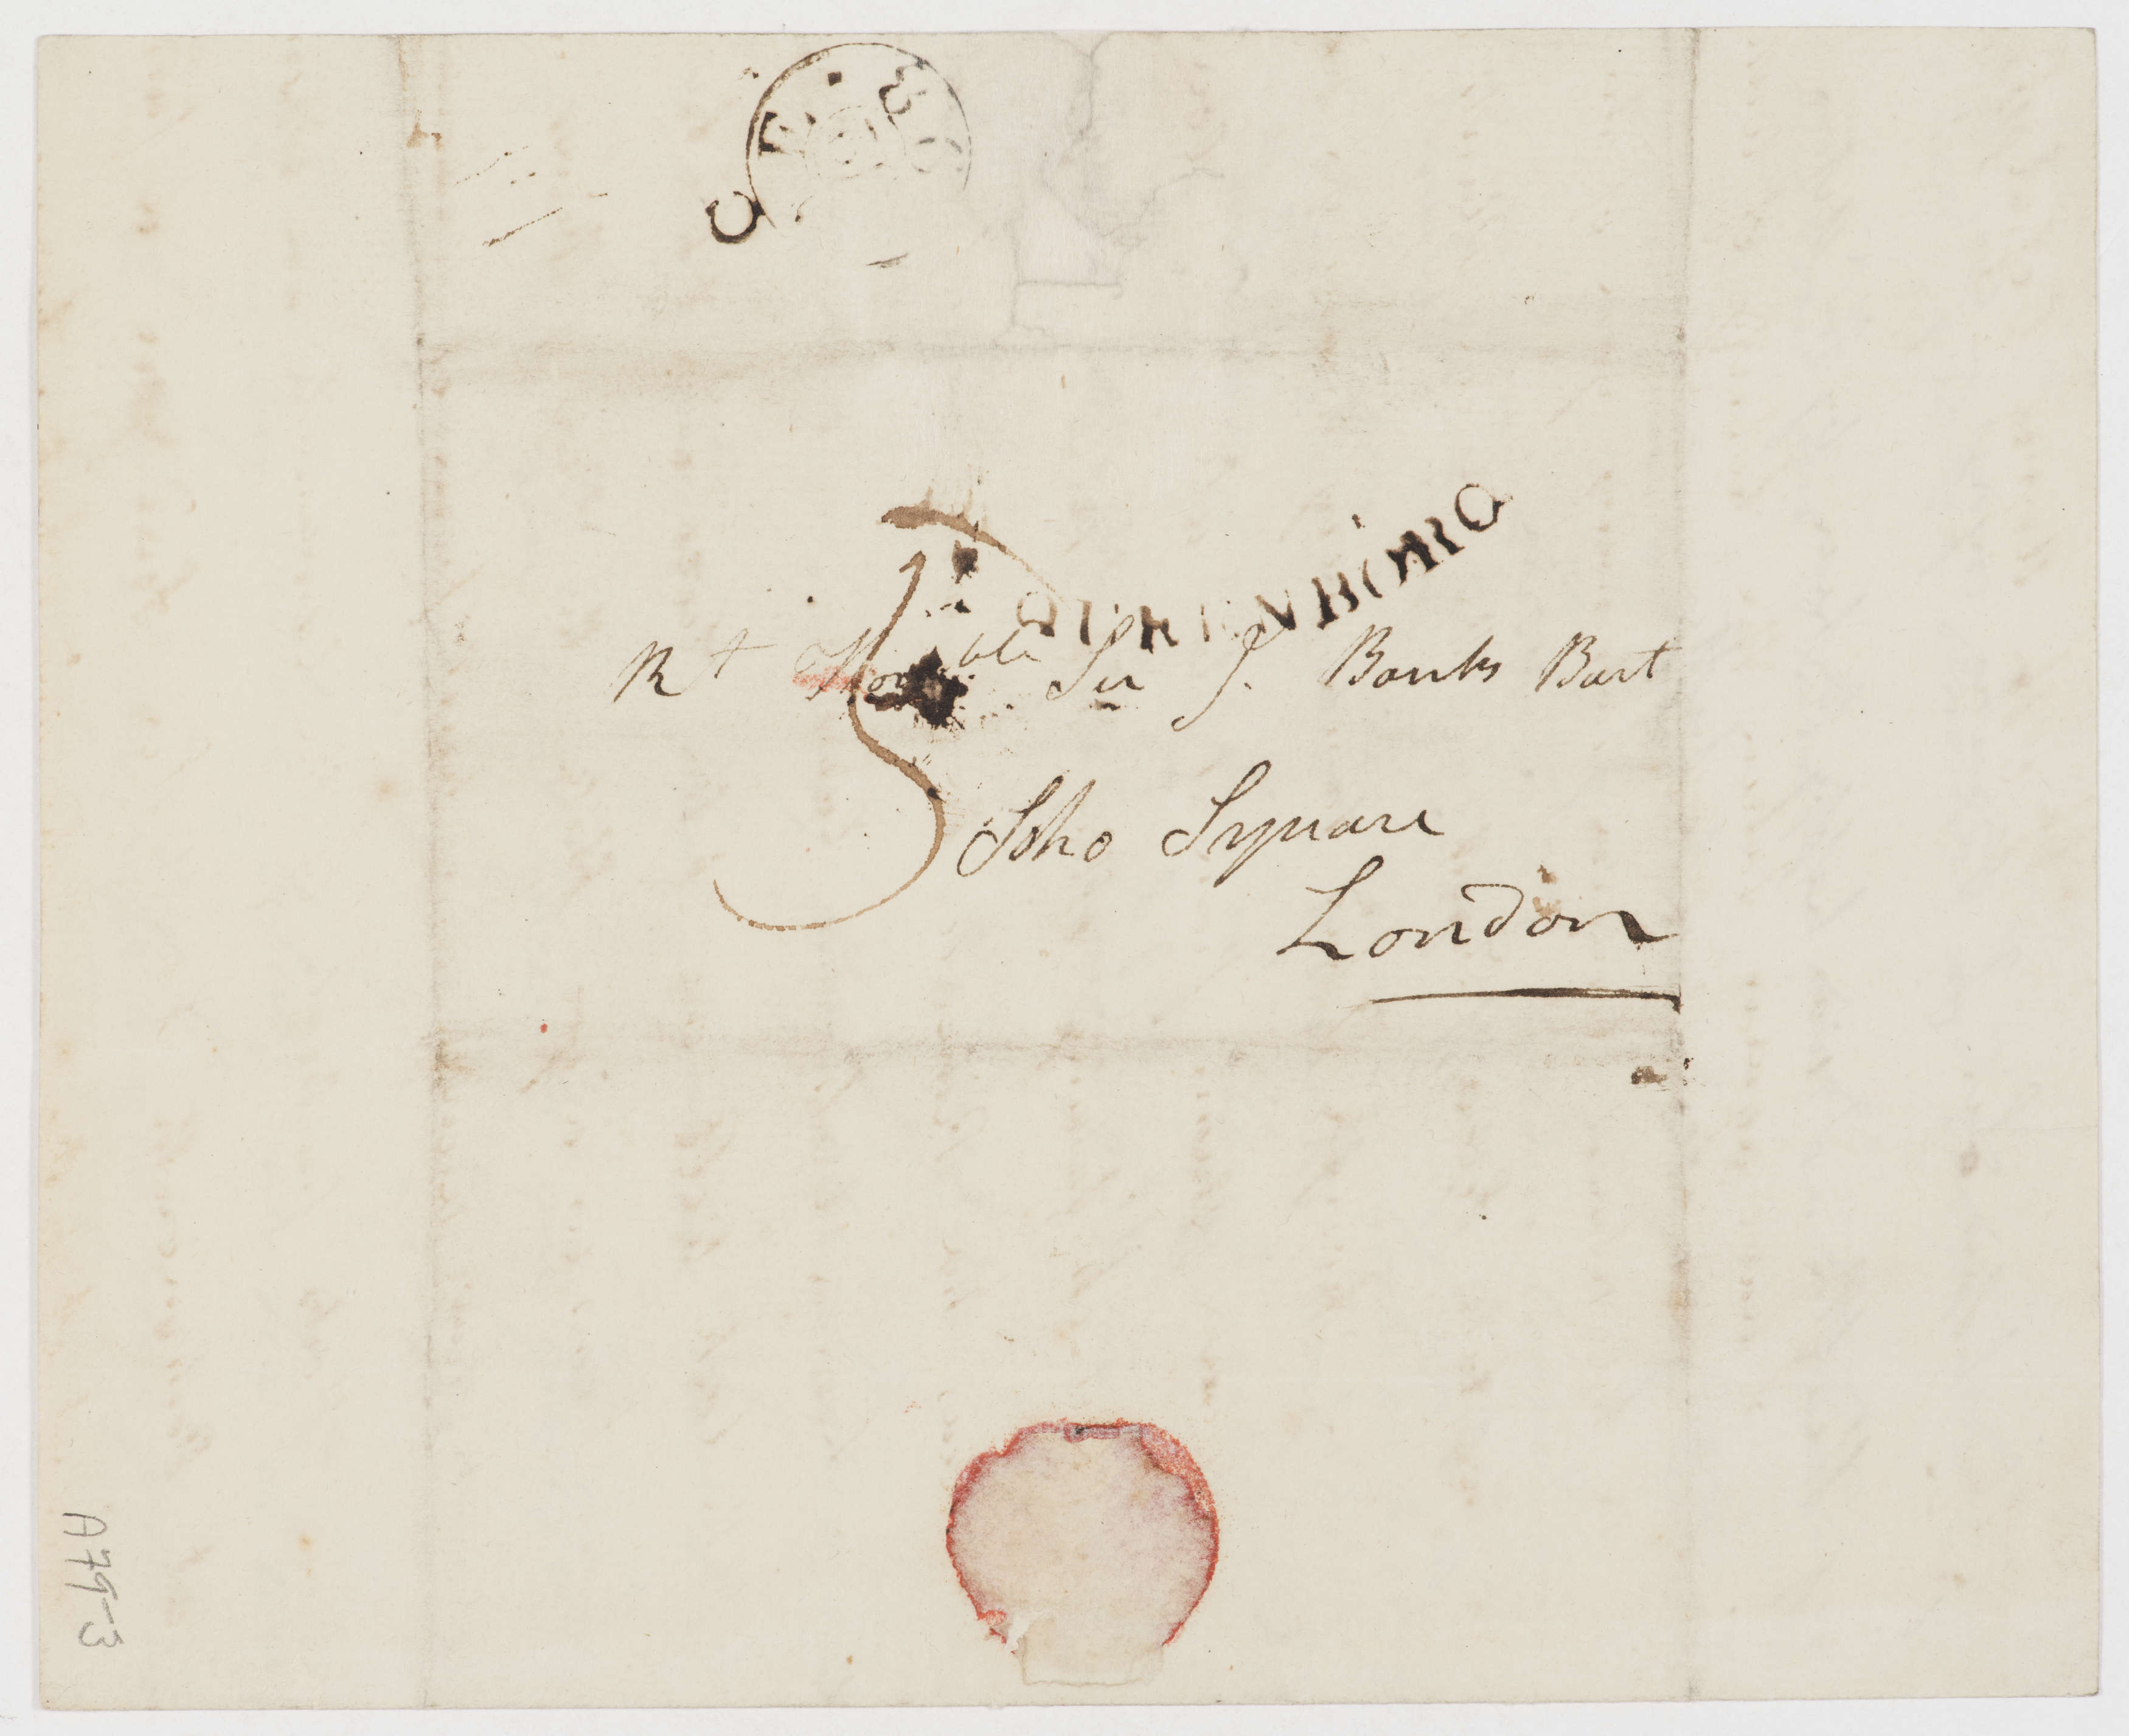 QUEENBORO
Rt Honble Sir J. Banks Bart
5
Soho Square
London
A79-3